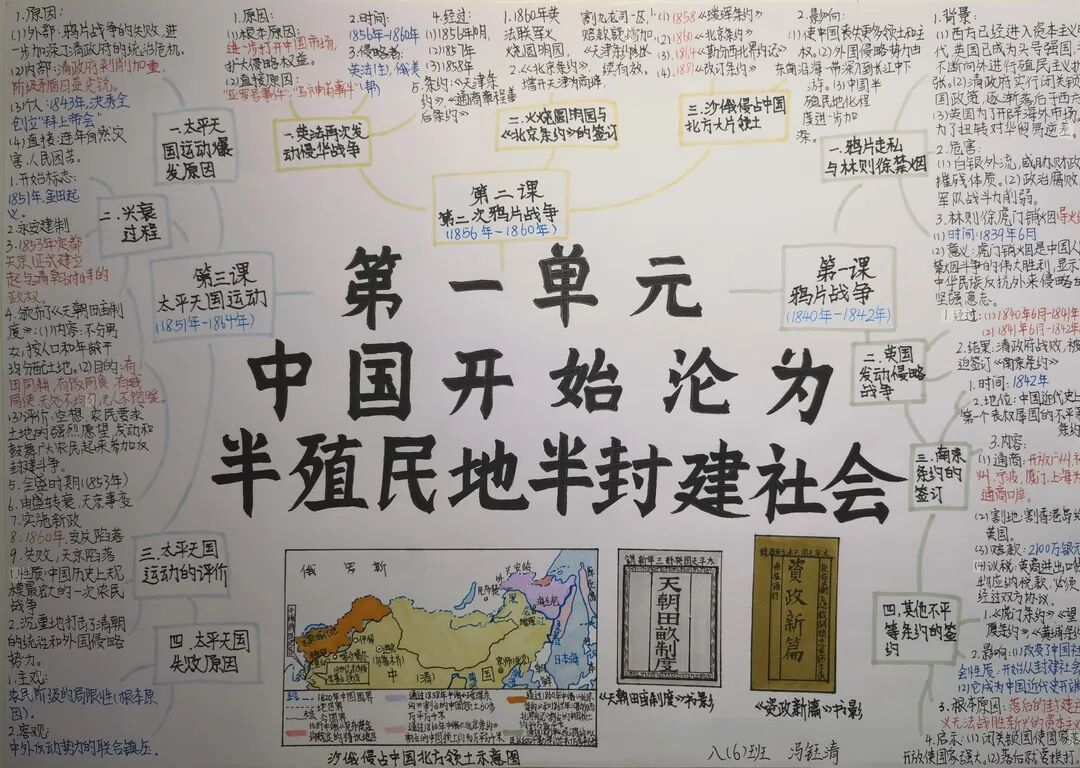 第一单元
中国开始沦为
半殖民地半封建社会
第一课
鸦片战争
(1840年-1842年)
一.鸦片走私
与林则徐禁烟
1.背景:
(1)西方已经进入资本主义
代,英国已成为头号强国,
2.危害:
(1)白银外流,威胁财政
摧残体质。(2)政治腐败
军队战斗力削弱。
3.林则徐虎门销烟
(1)时间:1839年6月
(2)意义:虎门销烟是中国人
禁烟斗争的伟大胜利,显示
中华民族反抗外来侵略
坚强意志。
二.英国
发动侵略
战争
1.经过:(1)1840年6月-1841年
(2)1841年6月-1842年
2.结果:清政府战败,被
迫签订《南京条约》
三.南京
条约的
签订
1.时间:1842年
2.地位:中国近代史上
第一个丧权辱国的不平等
条约
3.内容:
(1)通商:开放广州、
州、宁波、厦门、上海
通商口岸。
(2)割地:割香港岛给
英国。
(3)赔款:2100万银元
(4)议税:英商进出口
纳税款,必须
经过双方协议。
四.其他不平
等条约的签
约
1.《虎门条约》《望
厦条约》《黄埔条约》
2.影响:(1)改变了中国社
会性质:开始从封建社会
(2)它成为中国近代史开
3.根本原因:落后的封建主
义无法战胜新兴的资本主义
4.启示:(1)闭关锁国使国家
开放使国家强大。(2)落后就要挨打。
第二课
第二次鸦片战争
(1856年-1860年)
一.英法再次发
动侵华战争
1.原因:
(1)根本原因:
进一步打开中国市场,
扩大侵略权益。
(2)直接原因:
"亚罗号事件"、"马神甫事件"
2.时间:
1856年-1860年
3.侵略者:
英法(主),俄美
(帮)
4.经过:
(1)1856年10月,
(2)1857年
(3)1858年
条约:《天津条
约》、《通商章程善
后条约》
二.火烧圆明园与
《北京条约》的签订
1.1860年英
法联军火
烧圆明园。
2.《北京条约》
增开天津为商埠
割九龙司一区,
赔款数增加,
《天津条约》
续有效。
三.沙俄侵占中国
北方大片领土
(1)1858《瑷珲条约》
(2)1860《北京条约》
(3)1864《勘分西北界约记》
(4)1881《改订条约》
2.影响:
(1)使中国丧失更多领土和主
权。(2)外国侵略势力由
东南沿海一带深入到长江中下
游。(3)中国半
殖民地化程
度进一步加
深。
第三课
太平天国运动
(1851年-1864年)
一.太平天
国运动爆
发原因
1.原因:
(1)外部:鸦片战争的失败,进
一步加深了清政府的统治危机。
(2)内部:清政府剥削加重,
阶级矛盾日益尖锐。
(3)个人:1843年,洪秀全
创立"拜上帝会"
(4)直接:连年自然灾
害,人民困苦。
二.兴衰
过程
1.开始标志:
1851年,金田起
义。
2.永安建制
3.1853年定都
天京(正式建立
起与清朝对峙的
政权。
4.颁布了《天朝田亩制
度》:(1)内容:不分男
女,按人口和年龄平
均分配土地,(2)目的:有
田同耕,有饭同食,有衣
同使,无处不均匀,无人不饱暖。
(3)评价:空想,农民要求
土地的强烈愿望,发动和
鼓舞广大农民起来参加反
封建斗争。
5.全盛时期(1853年)
6.由盛转衰,天京事变
7.实施新政
8.1860年,安庆陷落
9.失败,天京陷落
三.太平天国
运动的评价
1.性质:中国历史上规
模最宏大的一次农民
战争
2.沉重地打击了清朝
的统治和外国侵略
势力。
四.太平天国
失败原因
1.主观:
农民阶级的局限性(根本原
因)。
2.客观:
中外反动势力的联合镇压。
俄罗斯
外兴安岭
库页岛
日本海
中(清)
沙俄侵占中国北方领土示意图
天朝田畝制度
《天朝田亩制度》书影
資政新篇
《资政新篇》书影
八(6)班 冯钰清